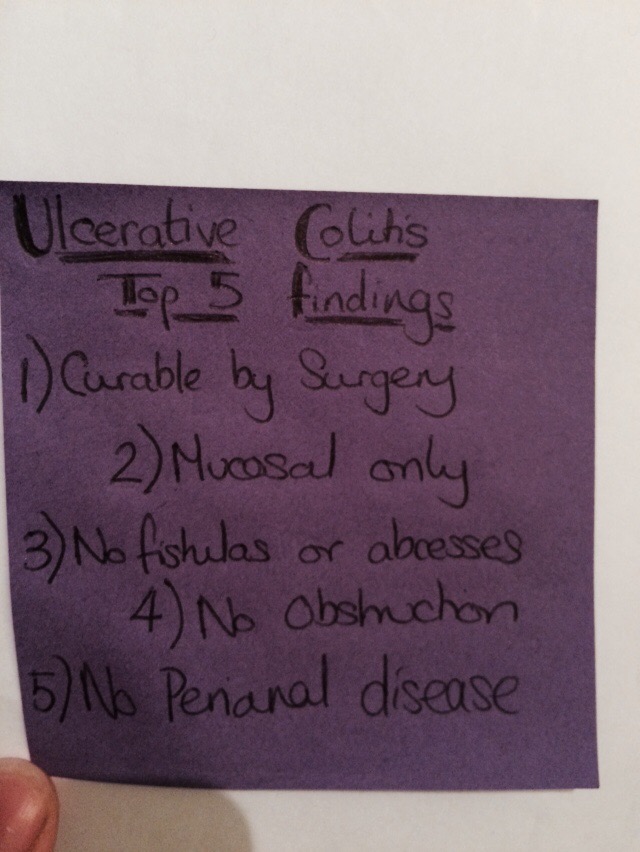 Ulcerative Colitis
Top 5 findings
1) Curable by Surgery
2) Mucosal only
3) No fistulas or abcesses
4) No Obstruction
5) No Perianal disease